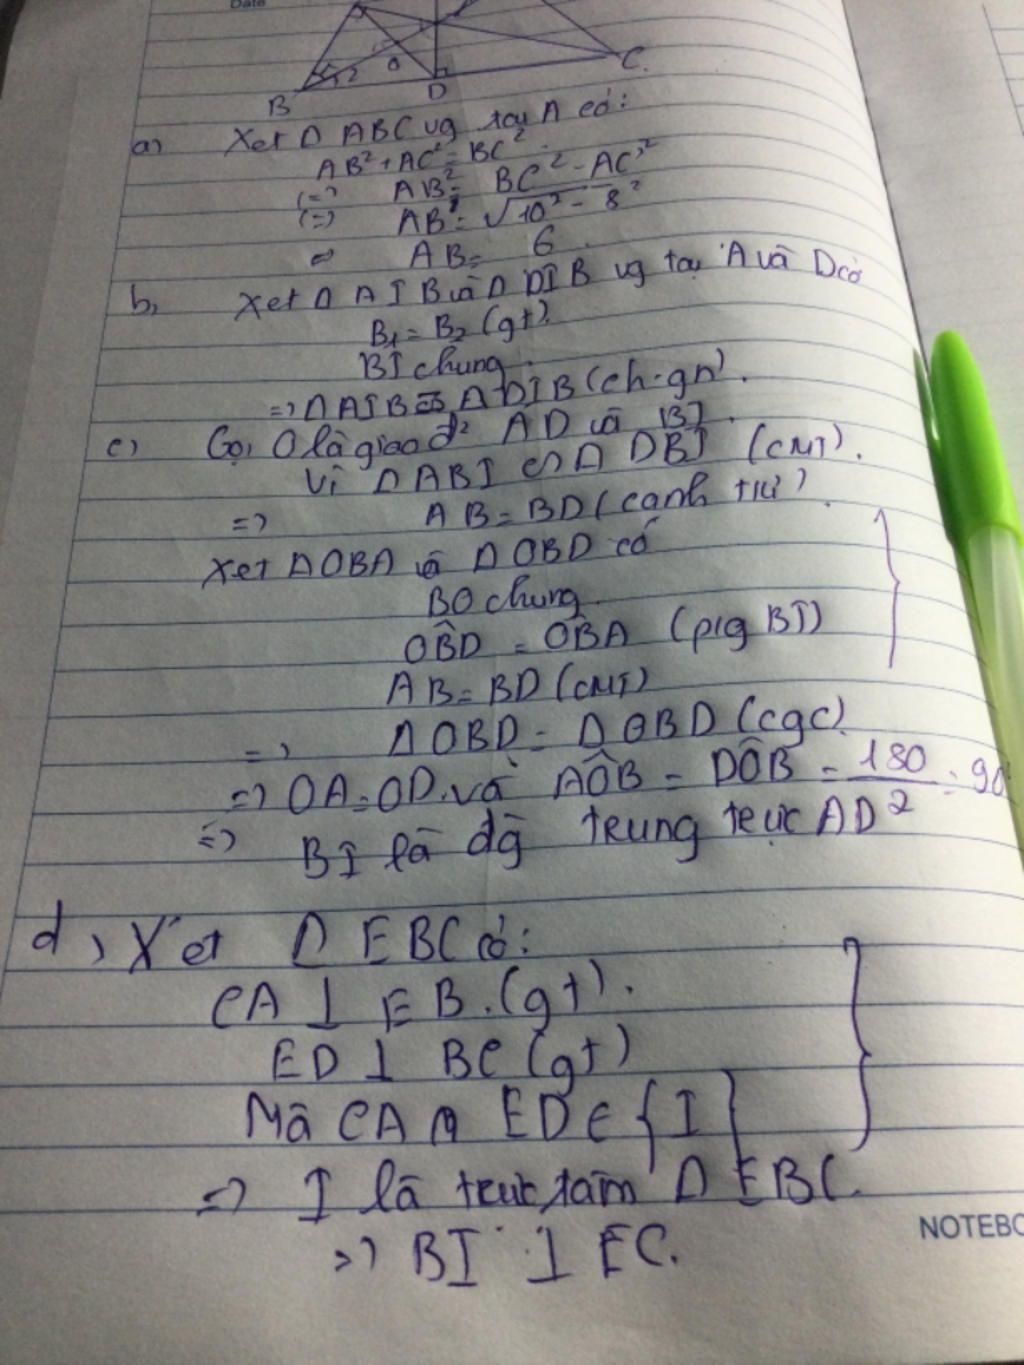 Date
B
D
C.
2
a) Xét Δ ABC vg tại A có:
AB² + AC² = BC²
(=) AB² = BC² - AC²
(=) AB = √10² - 8²
AB = 6
b, Xét Δ AIB và Δ DIB vg tại A và D có
B₁ = B₂ (gt).
BI chung.
=> Δ AIB = Δ DIB (ch.gn).
c) Gọi O là giao đ² AD và BI.
Vì Δ ABI = Δ DBI (CMT).
=> AB = BD (cạnh t/ư)
Xét Δ OBA và Δ OBD có
BO chung
OB̂D = OB̂A (p/g BI)
AB = BD (CMT)
=> Δ OBD = Δ OBD (cgc)
=> OA = OD và AÔB = DÔB = 180/2 = 90
=> BI là đg trung trực AD
d, Xét Δ EBC có:
CA ⊥ EB. (gt).
ED ⊥ BC (gt)
Mà CA ∩ ED ∈ {I}
=> I là trực tâm Δ EBC.
=> BI ⊥ EC.
NOTEBO